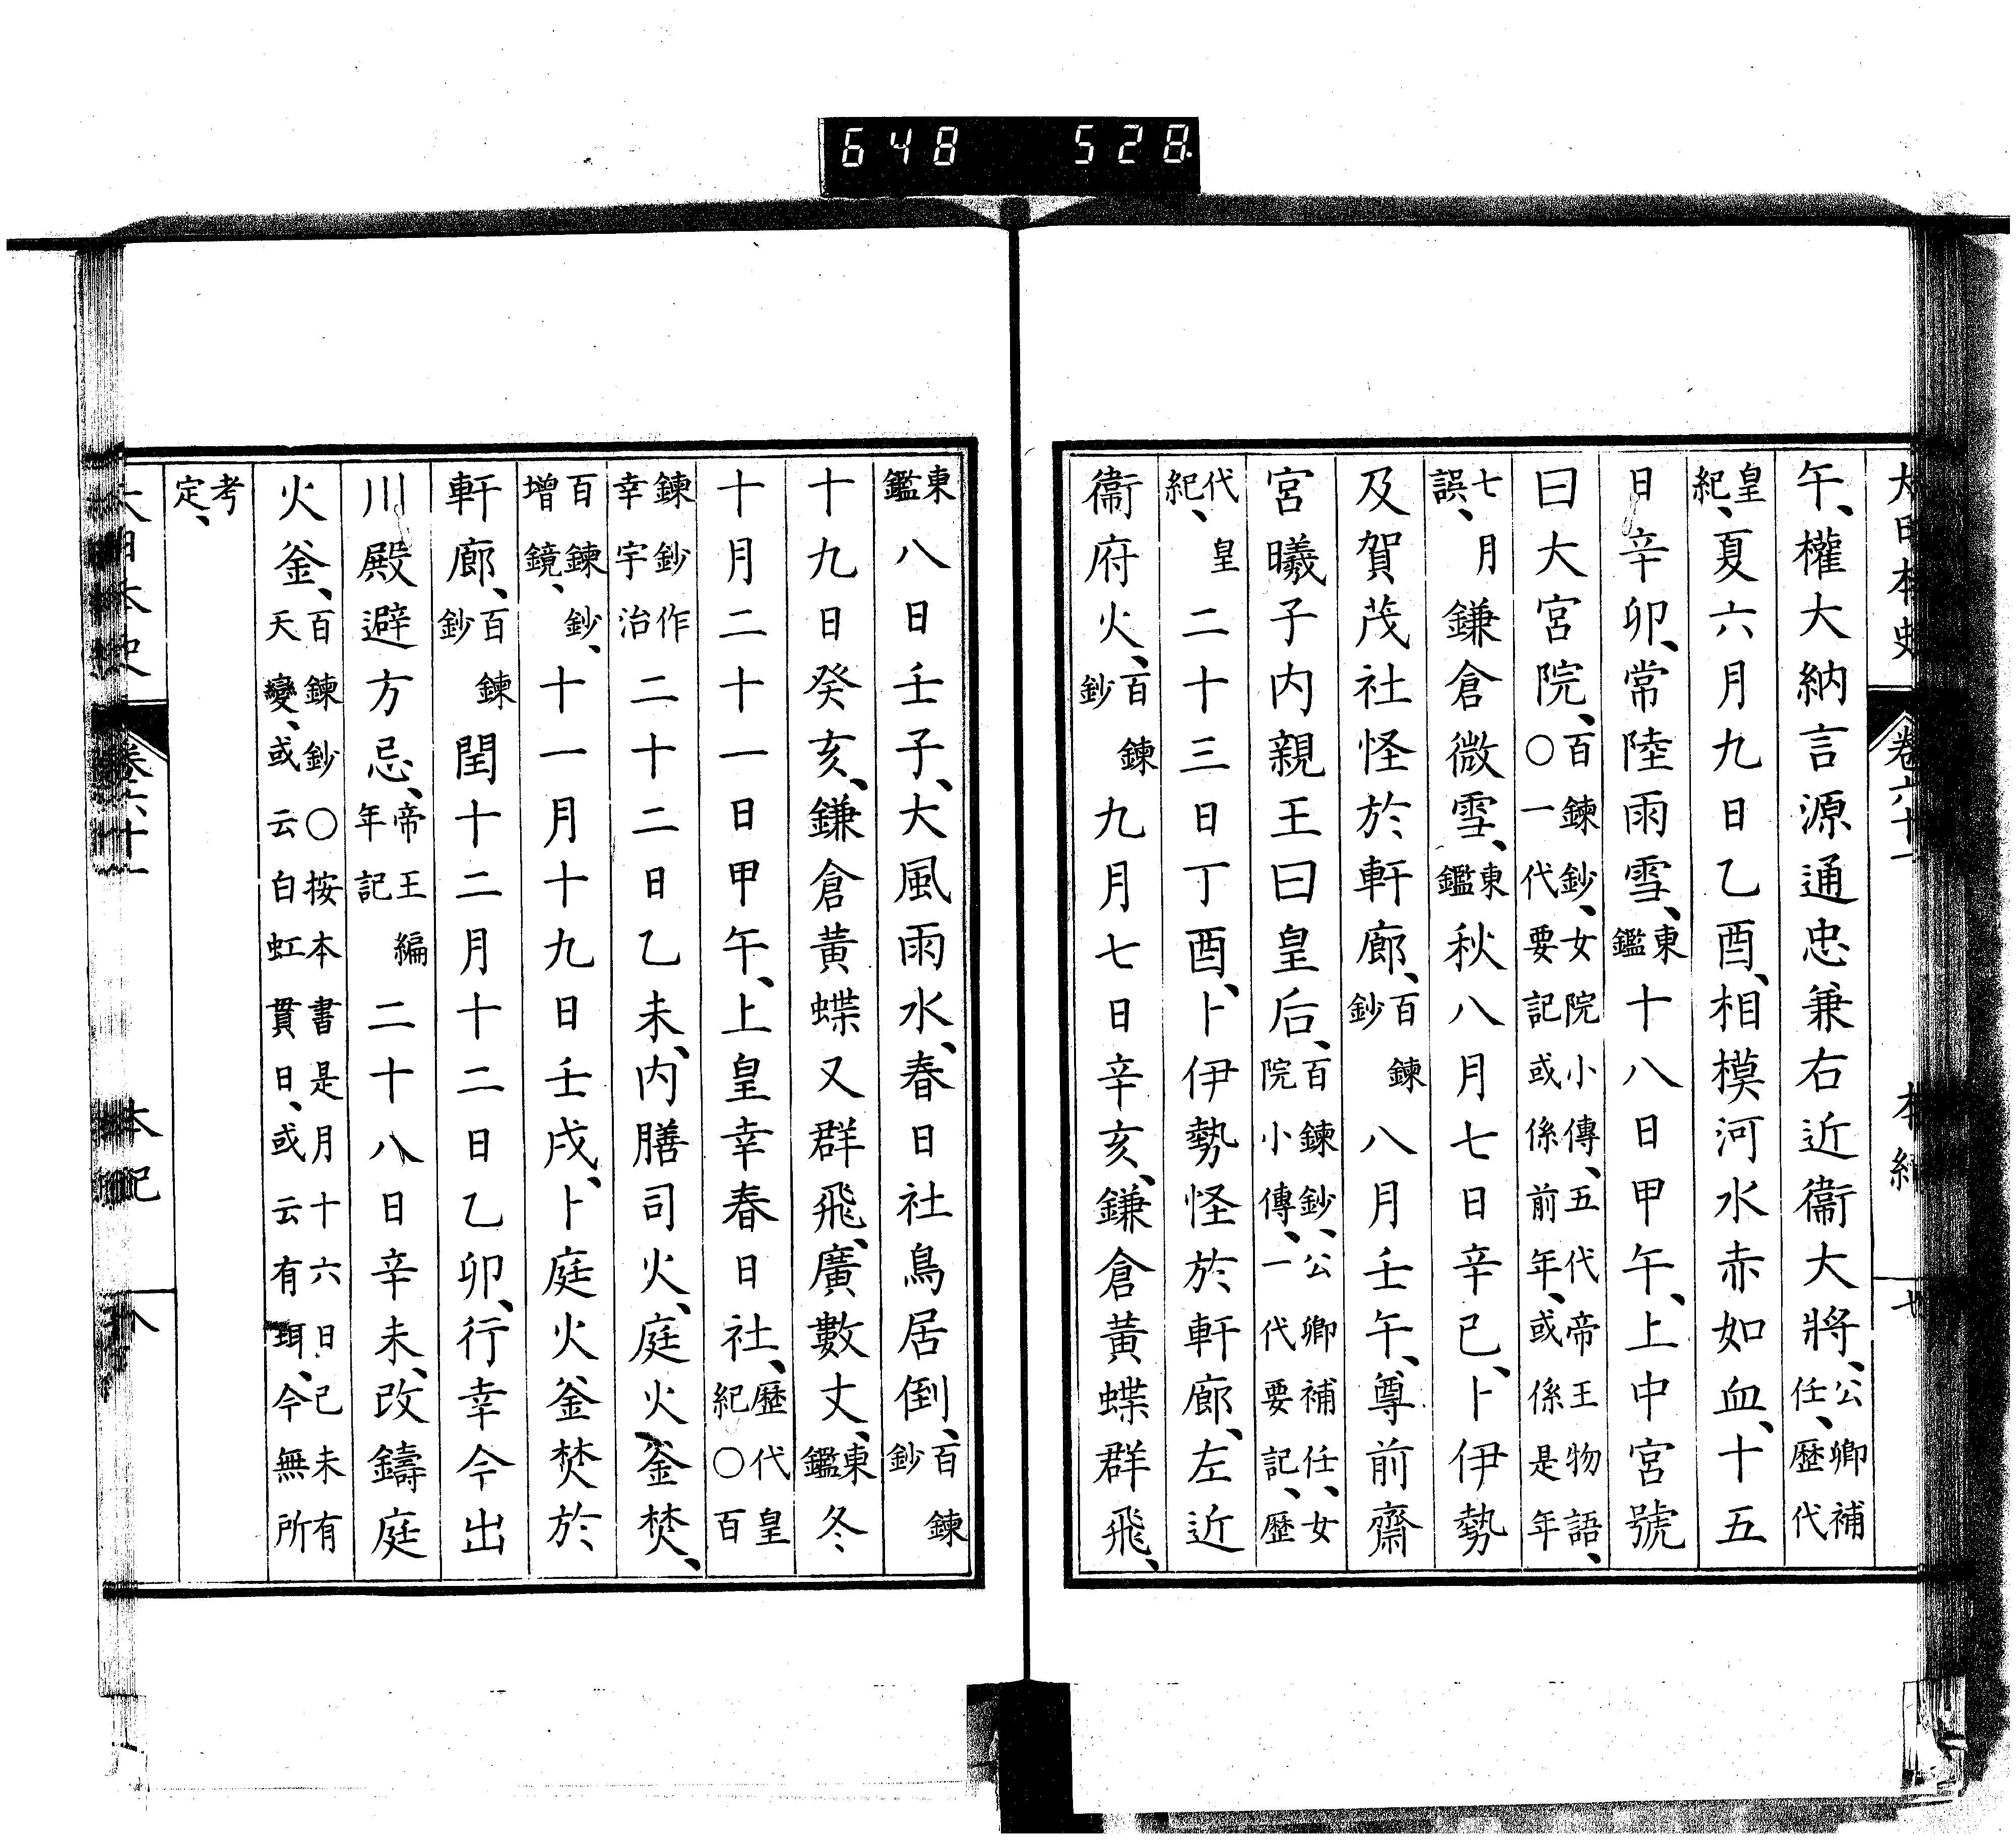 648 528
大日本史 卷六十一 本紀 七
午、權大納言源通忠兼右近衞大將、公卿補任、歷代
皇紀、夏六月九日乙酉、相模河水赤如血、十五
日辛卯、常陸雨雪、東鑑十八日甲午、上中宮號
曰大宮院、百鍊鈔、女院小傳、五代帝王物語、〇一代要記或係前年、或係是年
七月誤、鎌倉微雪、東鑑秋八月七日辛巳、卜伊勢
及賀茂社怪於軒廊、百鍊鈔八月壬午、尊前齋
宮曦子內親王曰皇后、百鍊鈔、公卿補任、女院小傳、一代要記、歷
代皇紀、二十三日丁酉、卜伊勢怪於軒廊、左近
衞府火、百鍊鈔九月七日辛亥、鎌倉黃蝶群飛、
東鑑八日壬子、大風雨水、春日社鳥居倒、百鍊鈔
十九日癸亥、鎌倉黃蝶又群飛、廣數丈、東鑑冬
十月二十一日甲午、上皇幸春日社、歷代皇紀〇百
鍊鈔作幸宇治二十二日乙未、內膳司火、庭火釜焚、
百鍊鈔、增鏡、十一月十九日壬戌、卜庭火釜焚於
軒廊、百鍊鈔閏十二月十二日乙卯、行幸今出
川殿避方忌、帝王編年記二十八日辛未、改鑄庭
火釜、百鍊鈔〇按本書是月十六日己未有天變、或云白虹貫日、或云有珥、今無所
考定、
大日本史 卷六十一 本紀 八